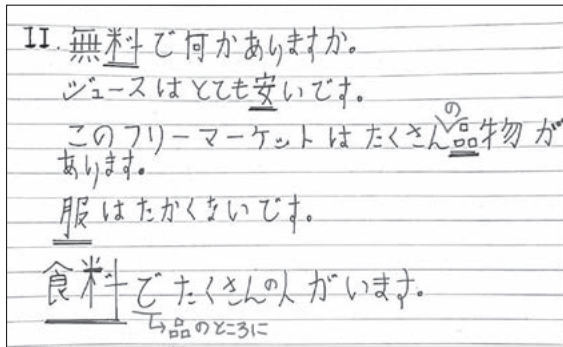 II. 無料で何かありますか。
ジュースはとても安いです。
このフリーマーケットはたくさんの品物が
あります。
服はたかくないです。
食料でたくさんの人がいます。
↳品のところに